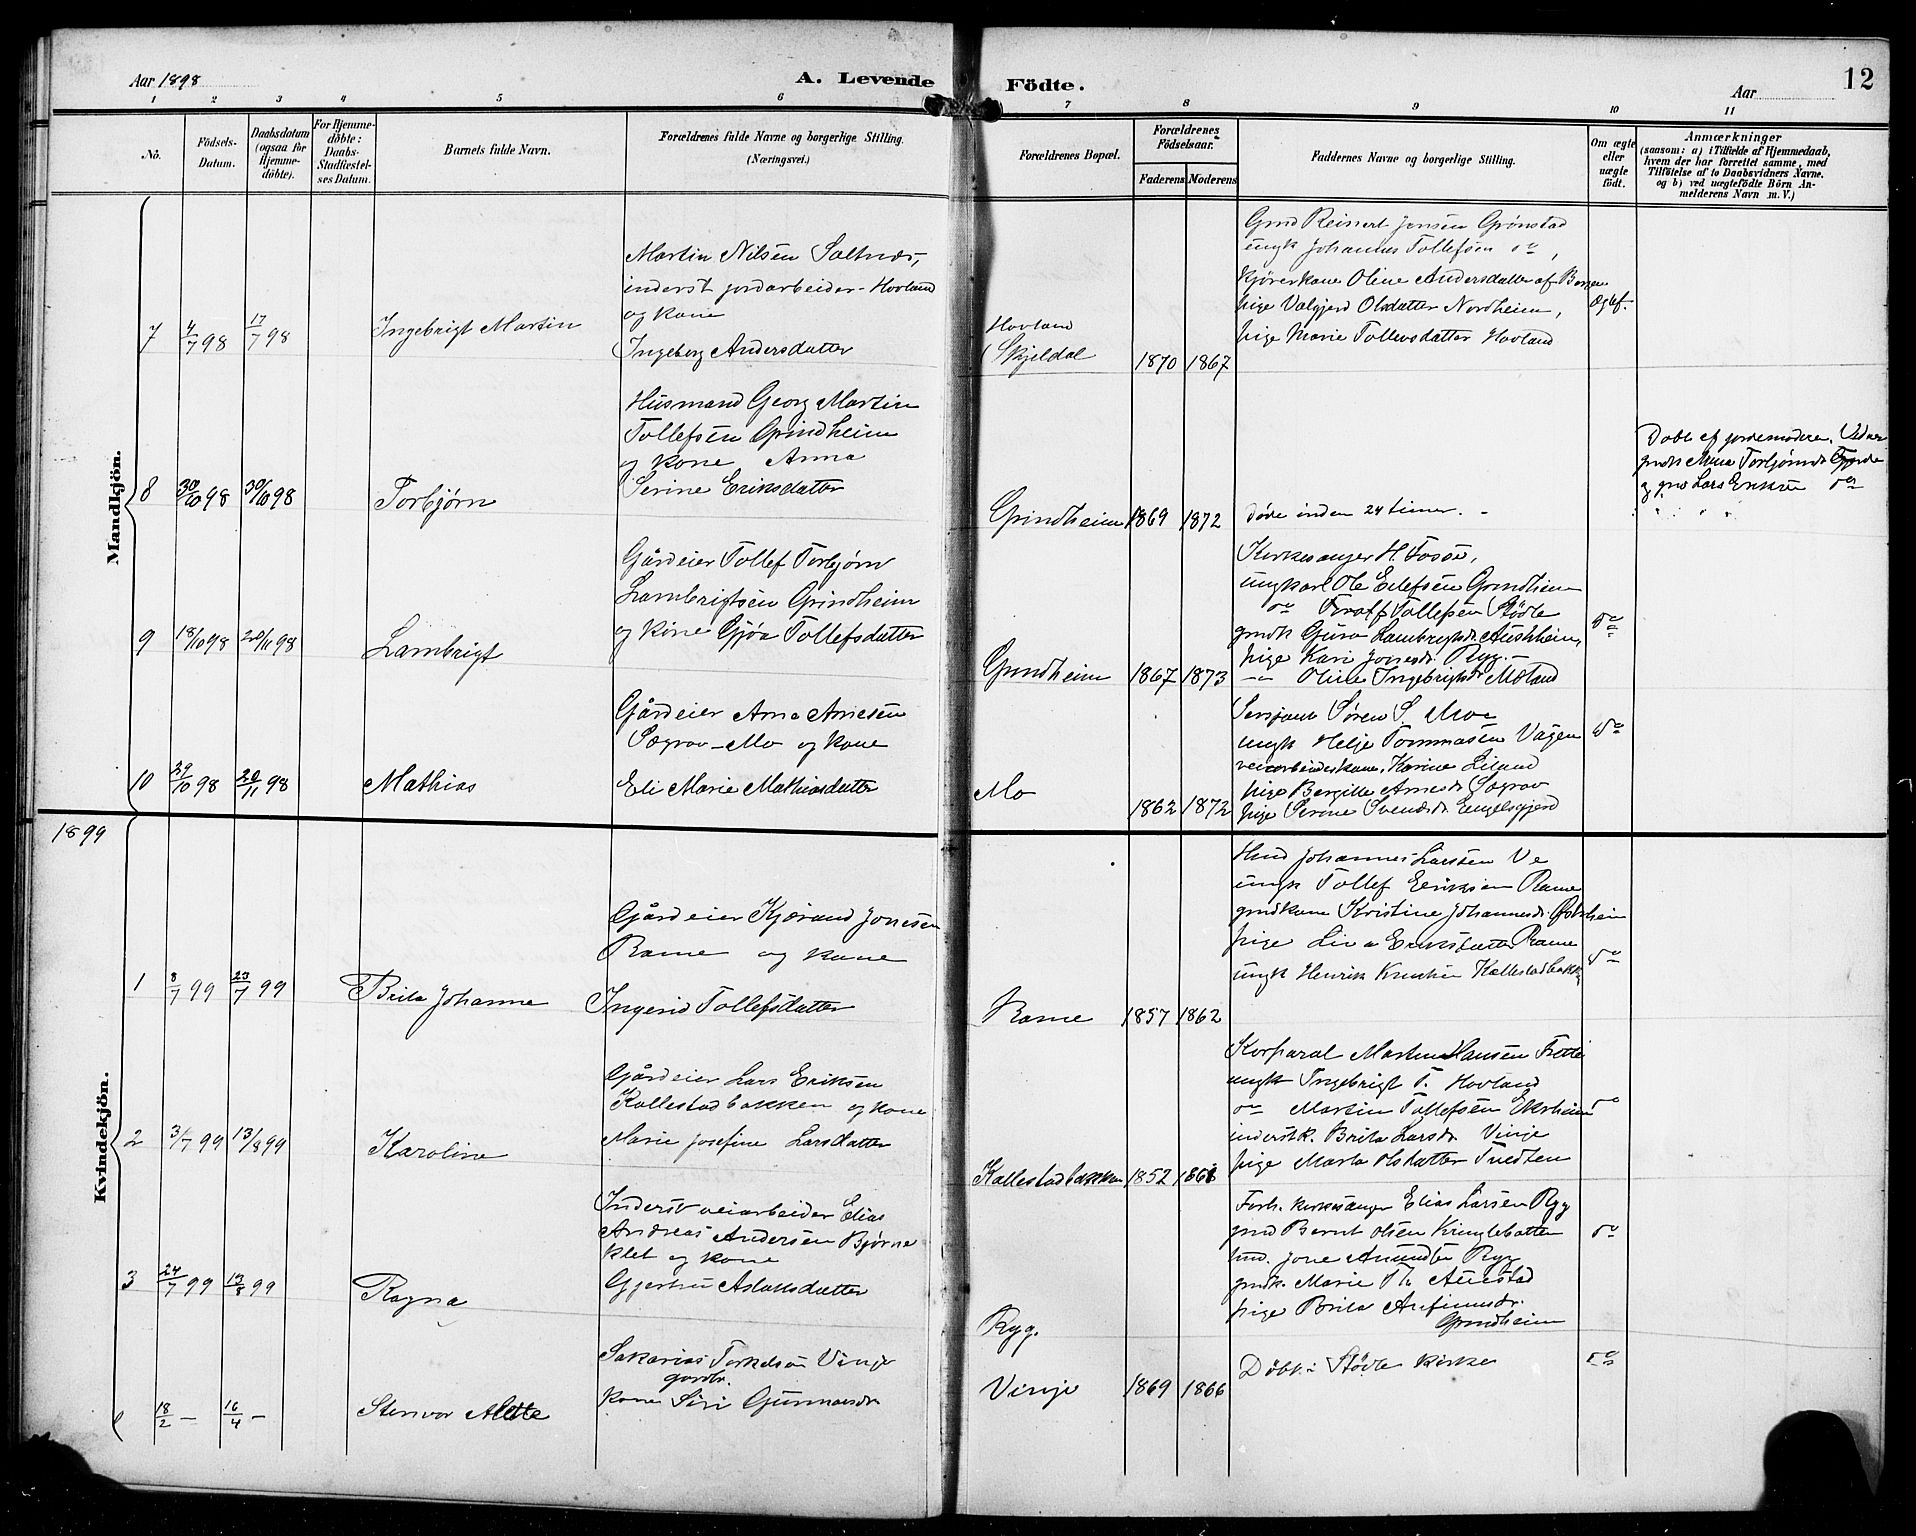 Aar 1898
A. Levende
Födte.
Aar
12
1 2 3 4 5 6 7 8 9 10 11
No.
Födsels-
Datum.
Daabsdatum
(ogsaa for
Hjemme-
döbte).
For Hjemme-
döbte:
Daabs-
Stadfæstel-
ses Datum.
Barnets fulde Navn.
Forældrenes fulde Navne og borgerlige Stilling.
(Næringsvei.)
Forældrenes Bopæl.
Forældrenes
Födselsaar.
Faderens Moderens
Faddernes Navne og borgerlige Stilling.
Om ægte
eller
uægte
födt.
Anmærkninger
(saasom: a) i Tilfælde af Hjemmedaab,
hvem der har forrettet samme, med
Tilföielse af to Daabsvidners Navne.
og b) ved uægtefödte Börn An-
melderens Navn m. V.)
Mandkjön.
7 4/7 98 17/7 98
Ingebrigt Martin
Martin Nilsen Saltnes,
inderst jordarbeider - Hovland
og kone
Ingeborg Andersdatter
Hovland
Skjeldal
1870 1867
Gmd Reinert Jensen Grønstad
ungk Johannes Tollefsen do,
Kjørerkone Oline Andersdatter af Bergen
pige Valgjerd Olsdatter Nordheim,
pige Marie Tollevsdatter Hovland
Ægtef.
8 30/10 98 30/10 98
Torbjørn
Husmand Georg Martin
Tollefsen Grindheim
og kone Anna
Serine Eriksdatter
Grindheim 1869 1872
døde inden 24 timer.
Døbt af jordemoderen. Vidner
gmdk Torbjørnsd.
og gmd Lars Eriksen do
9 18/10 98 20/11 98
Lambrigt
Gårdeier Tollef Torbjørn
Lambrigtsen Grindheim
og kone Gjøa Tollefsdatter
Grindheim 1867 1873
Kirkesanger H. Fosse,
ungkarl Ole Eilefsen Grindheim
do Tollefsen Stødle
gmdk Guro Lambrigtsd. Austheim,
pige Kari Jonesd. Ryg. -
-"- Oline Ingebrigtsdr Moland
do
10 29/10 98 20/11 98
Mathias
Gårdeier Arne Arnesen
Sograv - Mo og kone
Eli Marie Mathiasdatter
Mo
1862 1872
Sersjant Søren S. Mo
ungk Helje Tommasen Vågen
veiarbeiderkone, Karine Liland
pige Bergitte Arnesd. Sograv
pige Serine Svendsd. Engelsgjerd
do
1899
Kvindekjön.
1 8/7 99 23/7 99
Brita Johanne
Gårdeier Kjærand Jonesen
Rame og kone
Ingerid Tollefsdatter
Rame 1857 1862
Hmd Johannes Larsen Ve
ungk Tollef Eriksen Rame
gmdkone Kristine Johannesd.
pige Liva Eriksdatter Rame
ungk Henrik Knutsen Kallestadbakk.
do
2 3/7 99 13/8 99
Karoline
Gårdeier Lars Eriksen
Kallestadbakken og kone
Marie Josefine Larsdatter
Kallestadbakken 1852
Korporal Martin Hansen Frette
ungk Ingebrigt T. Hovland
do Martin Tollefsen Ekrheim
inderstk. Brita Larsdr. Vinje
pige Marta Olsdatter Tvedten
do
3 24/7 99 13/8 99
Ragna
Inderst veiarbeider Elias
Andreas Andersen Bjørne
klet og kone
Gjertru Aslaksdatter
Ryg.
Forh. kirkesanger Elias Larsen Ryg
gmd Bernt Olsen Kringlebotten
hmd. Jone Amundsen Ryg
gmdk. Marie Th. Austad
pige Brita Arfinnsdr.
Grindheim
do
18/2 - 16/4 -
Stenvor Alette
Sakarias Torkelsen Vinje
gardbr.
kone Siri Gunnarsdr
Vinje 1869 1866
Döbt i Stödle kirke
do